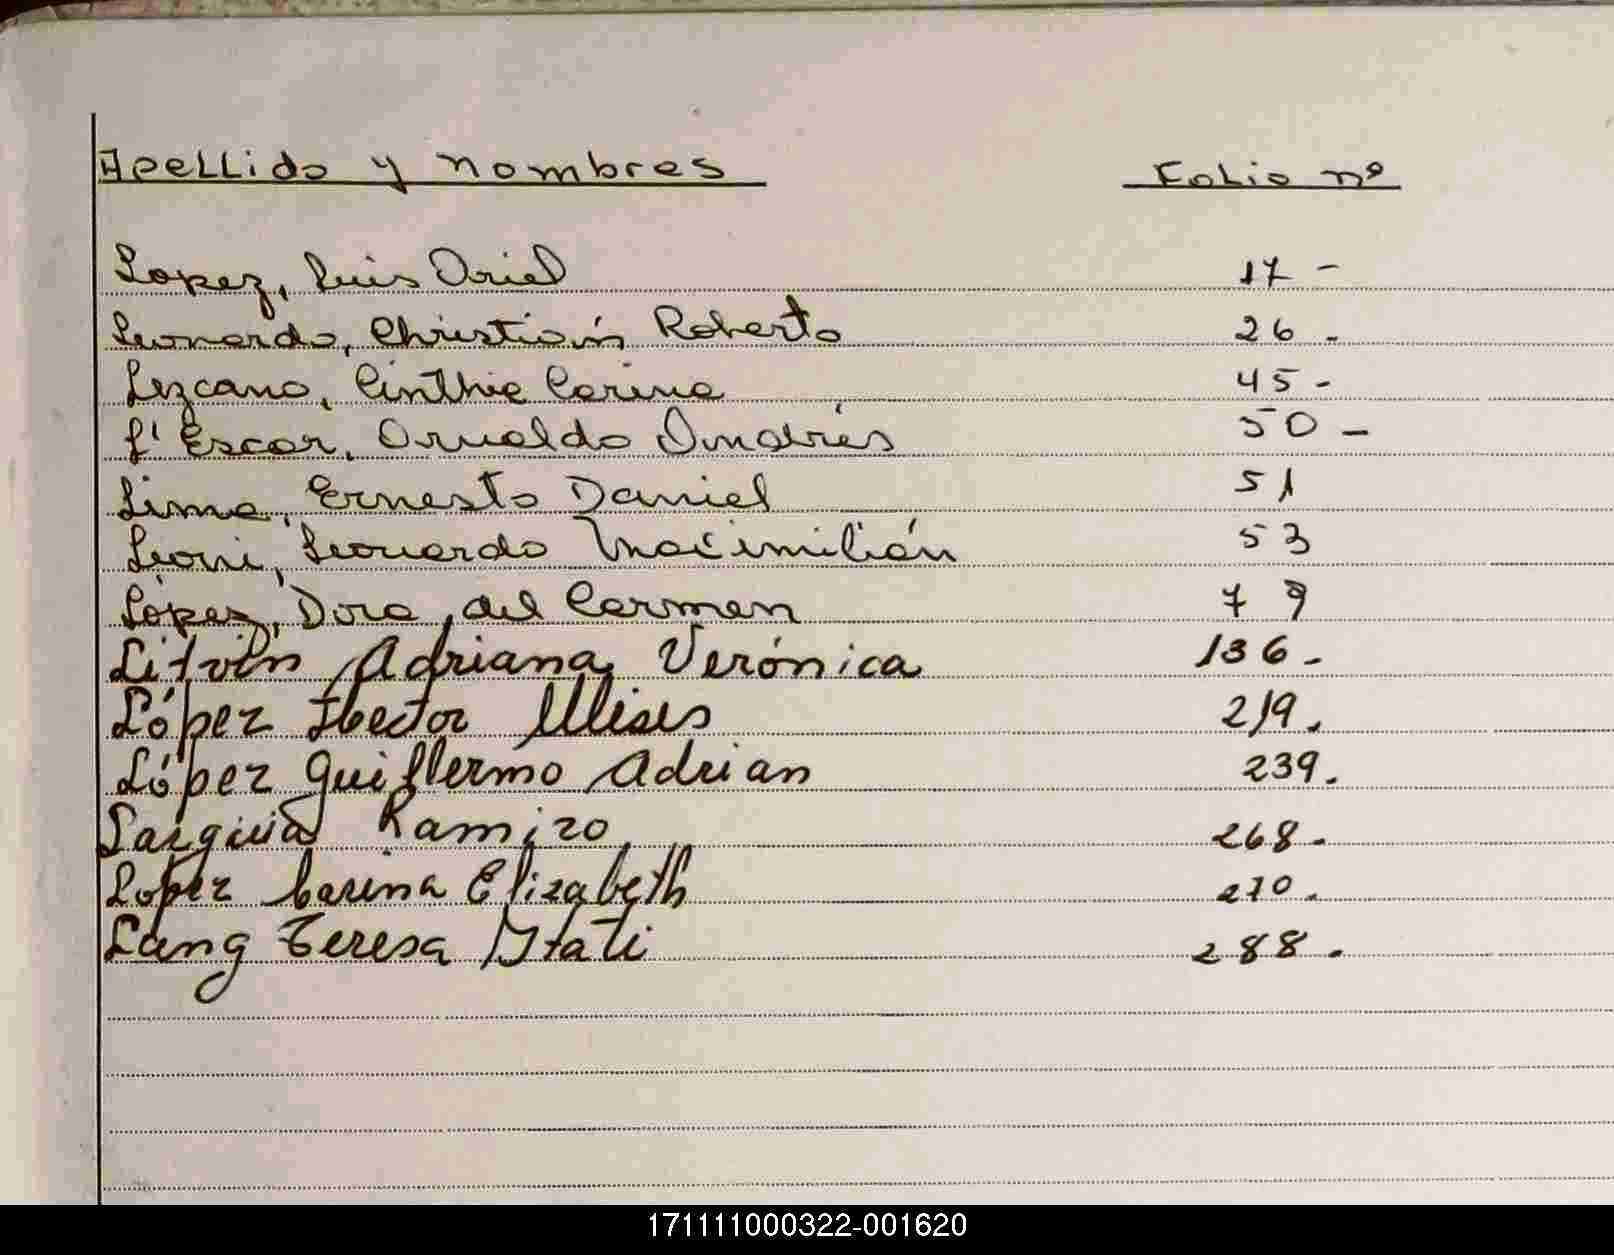 Apellido y nombres Folio nº
Lopez, Luis Oriel 17 -
Leonardo, Christián Roberto 26 -
Lezcano, Cinthia Carina 45 -
L'Escar, Osvaldo Andrés 50 -
Lima, Ernesto Daniel 51
Leoni, Leonardo Maximilián 53
López, Dora del Carmen 79
Litvin, Adriana Verónica 136 -
López Hector Ulises 219.
López Guillermo Adrian 239.
Ramiro 268 -
Lopez Carina Elizabeth 270.
Lang Teresa Itati 288.
171111000322-001620